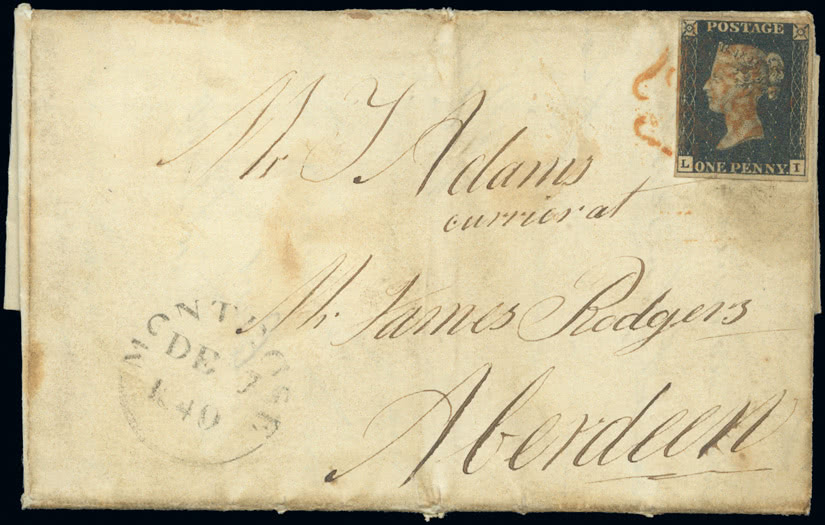 POSTAGE
L ONE PENNY. I
Mr J Adams
currier at
Mr. James Rodgers
Aberdeen
MONTROSE
DE 7
1840